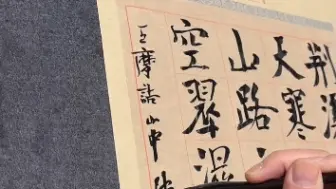 荆溪
天寒
山路
空翠湿
王摩詰山中